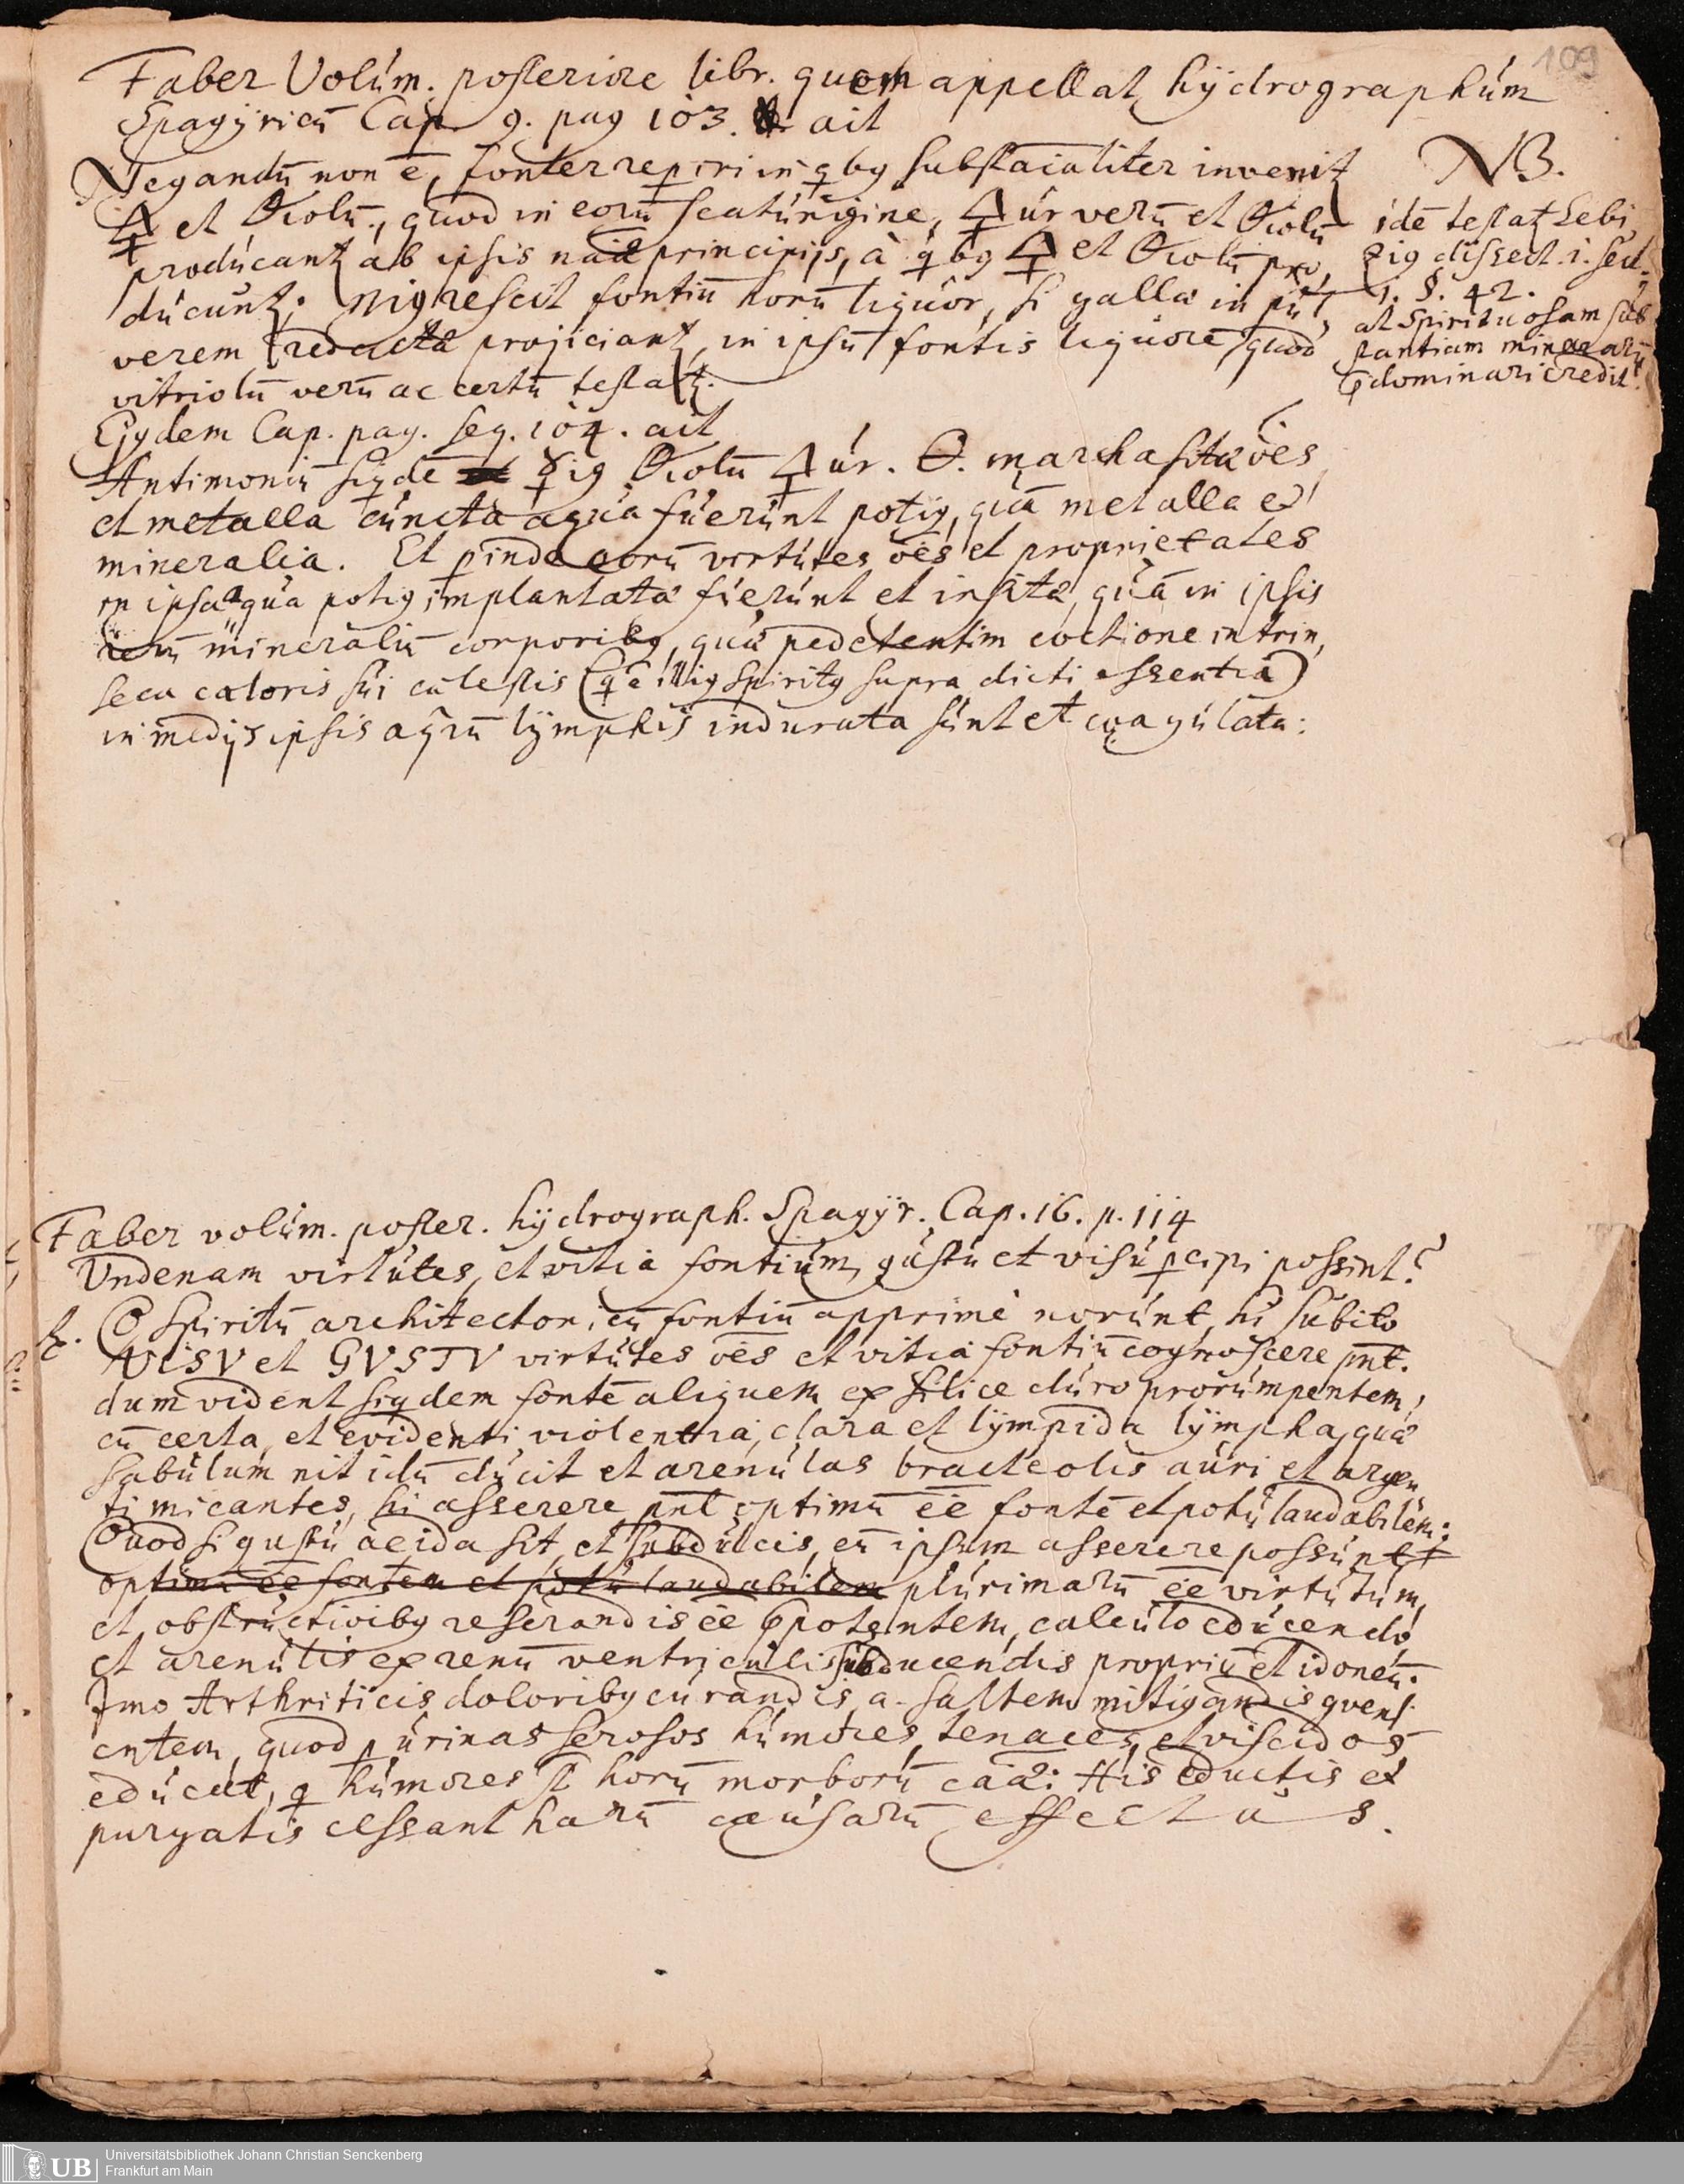 109
Faber Volúm. posteriore libr. quem appellat hÿdrographúm
Spagÿricū Cap. 9. pag 103. ait
Negandū non ē, fontes reperiri in qbꝫ substācialiter invenit
🜍 et 🜖olū, quod in eorū scatúrigine, 🜍úr verū et 🜖olū
prodúcant ab ipsis nāae principijs, à qbꝫ 🜍 et 🜖olū pro,
dúcúnt; nigrescit fontiū horū liquor, si galla in púl,
verem redacta projiciant, in ipsū fontis liquorē quod
vitriolū verū ac certū testat.
NB.
idē testat Lebi
zig dissect. 1. sect.
1. §. 42.
at Spirituosam sub
stantiam minerarū
p̄dominari credit.
Ejꝰdem Cap. pag. seq. 104. ait
Antimoniū siqꝰdē ☿iꝰ 🜖olū 🜍úr. 🜔. marchasitæ ōēs
et metalla cúncta aqua fúerúnt potiꝰ, quā metalla et
mineralia. Et perinde eorū virtútes ōēs et proprietates
in ipsa aqua potiꝰ implantatæ fúerúnt et insitæ, quā in ipsis
mineraliū corporibꝰ, quæ pedetentim coctione intrin,
seca caloris súi cælestis (qē illiꝰ Spiritꝰ supra dicti essentia)
in medijs ipsis aqrū lÿmphis indurata súnt et coagúlata:
Faber volúm. poster. hÿdrograph. Spagÿr. Cap. 16. p. 114
Undenam virtútes, et vitia fontiúm, gústú et visú pcipi possint?
R. Q Spiritū architectonicū fontiū apprimè norúnt, hi súbito
VISV et GVSTV virtútes ōēs et vitia fontiū cognoscere pñt.
dum vident siqꝰdem fontē aliquem ex silice dúro prorúmpentem,
cū certa, et evidenti violentia, clara et lÿmpida lÿmpha, quæ
sabúlum nitidū dúcit et arenúlas bracteolis aúri et argen
ti micantes, hi asserere pñt optimū ēē fontē et potū laudabilem:
Quod si gustú acida sit, et subdúlcis, eū ipsum asserere possúnt
optimū ēē fontem et potū laudabilem plúrimarū ēē virtútúm,
et obstrúctioibꝰ reserandis ēē p̄potentem, calcúlo edúcendo
et arenúlis ex renū ventriculis subducendis propriū et idoneū.
Imo Arthriticis doloribꝰ cúrandis, a. saltem mitigandis ꝗveni
entem, quod p úrinas serosos húmores, tenaces, et viscidos
edúcat, q húmores st horū morborū cāā: His edúctis et
purgatis cessant harū caúsarū effectús.
Universitätsbibliothek Johann Christian Senckenberg
Frankfurt am Main
UB